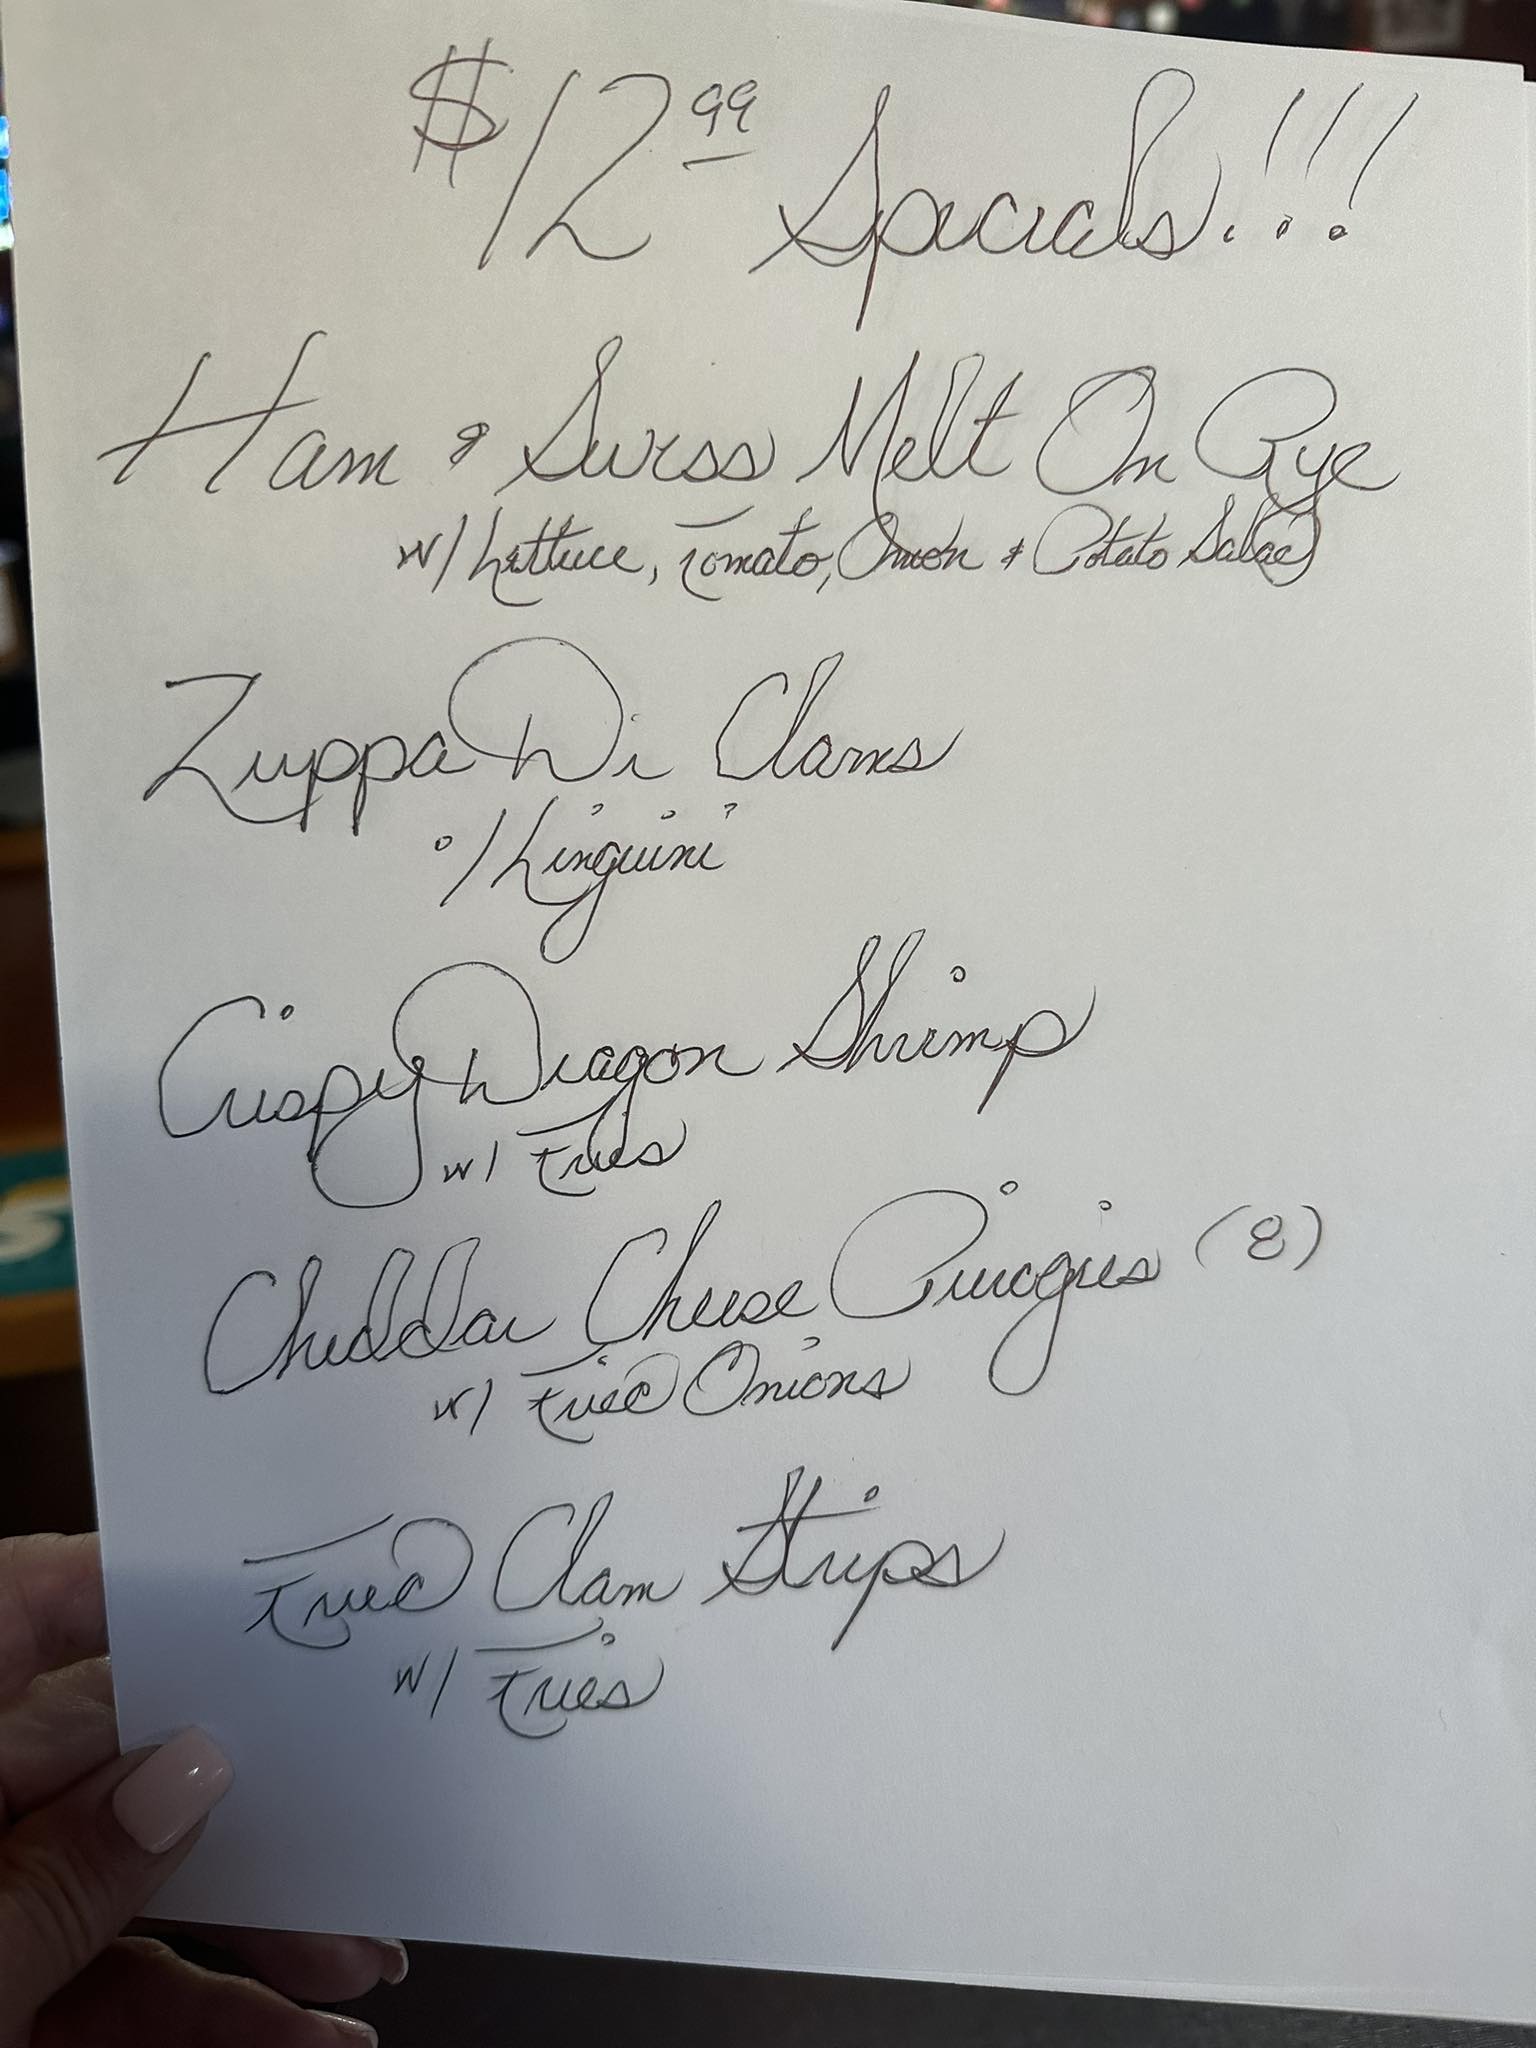 $12.99 Specials!!!
Ham & Swiss Melt On Rye
w/ Lettuce, Tomato, Onion & Potato Salad
Zuppa Di Clams
o/ Linguini
Crispy Dragon Shrimp
w/ Fries
Cheddar Cheese Pierogies (8)
w/ Fried Onions
Fried Clam Strips
w/ Fries